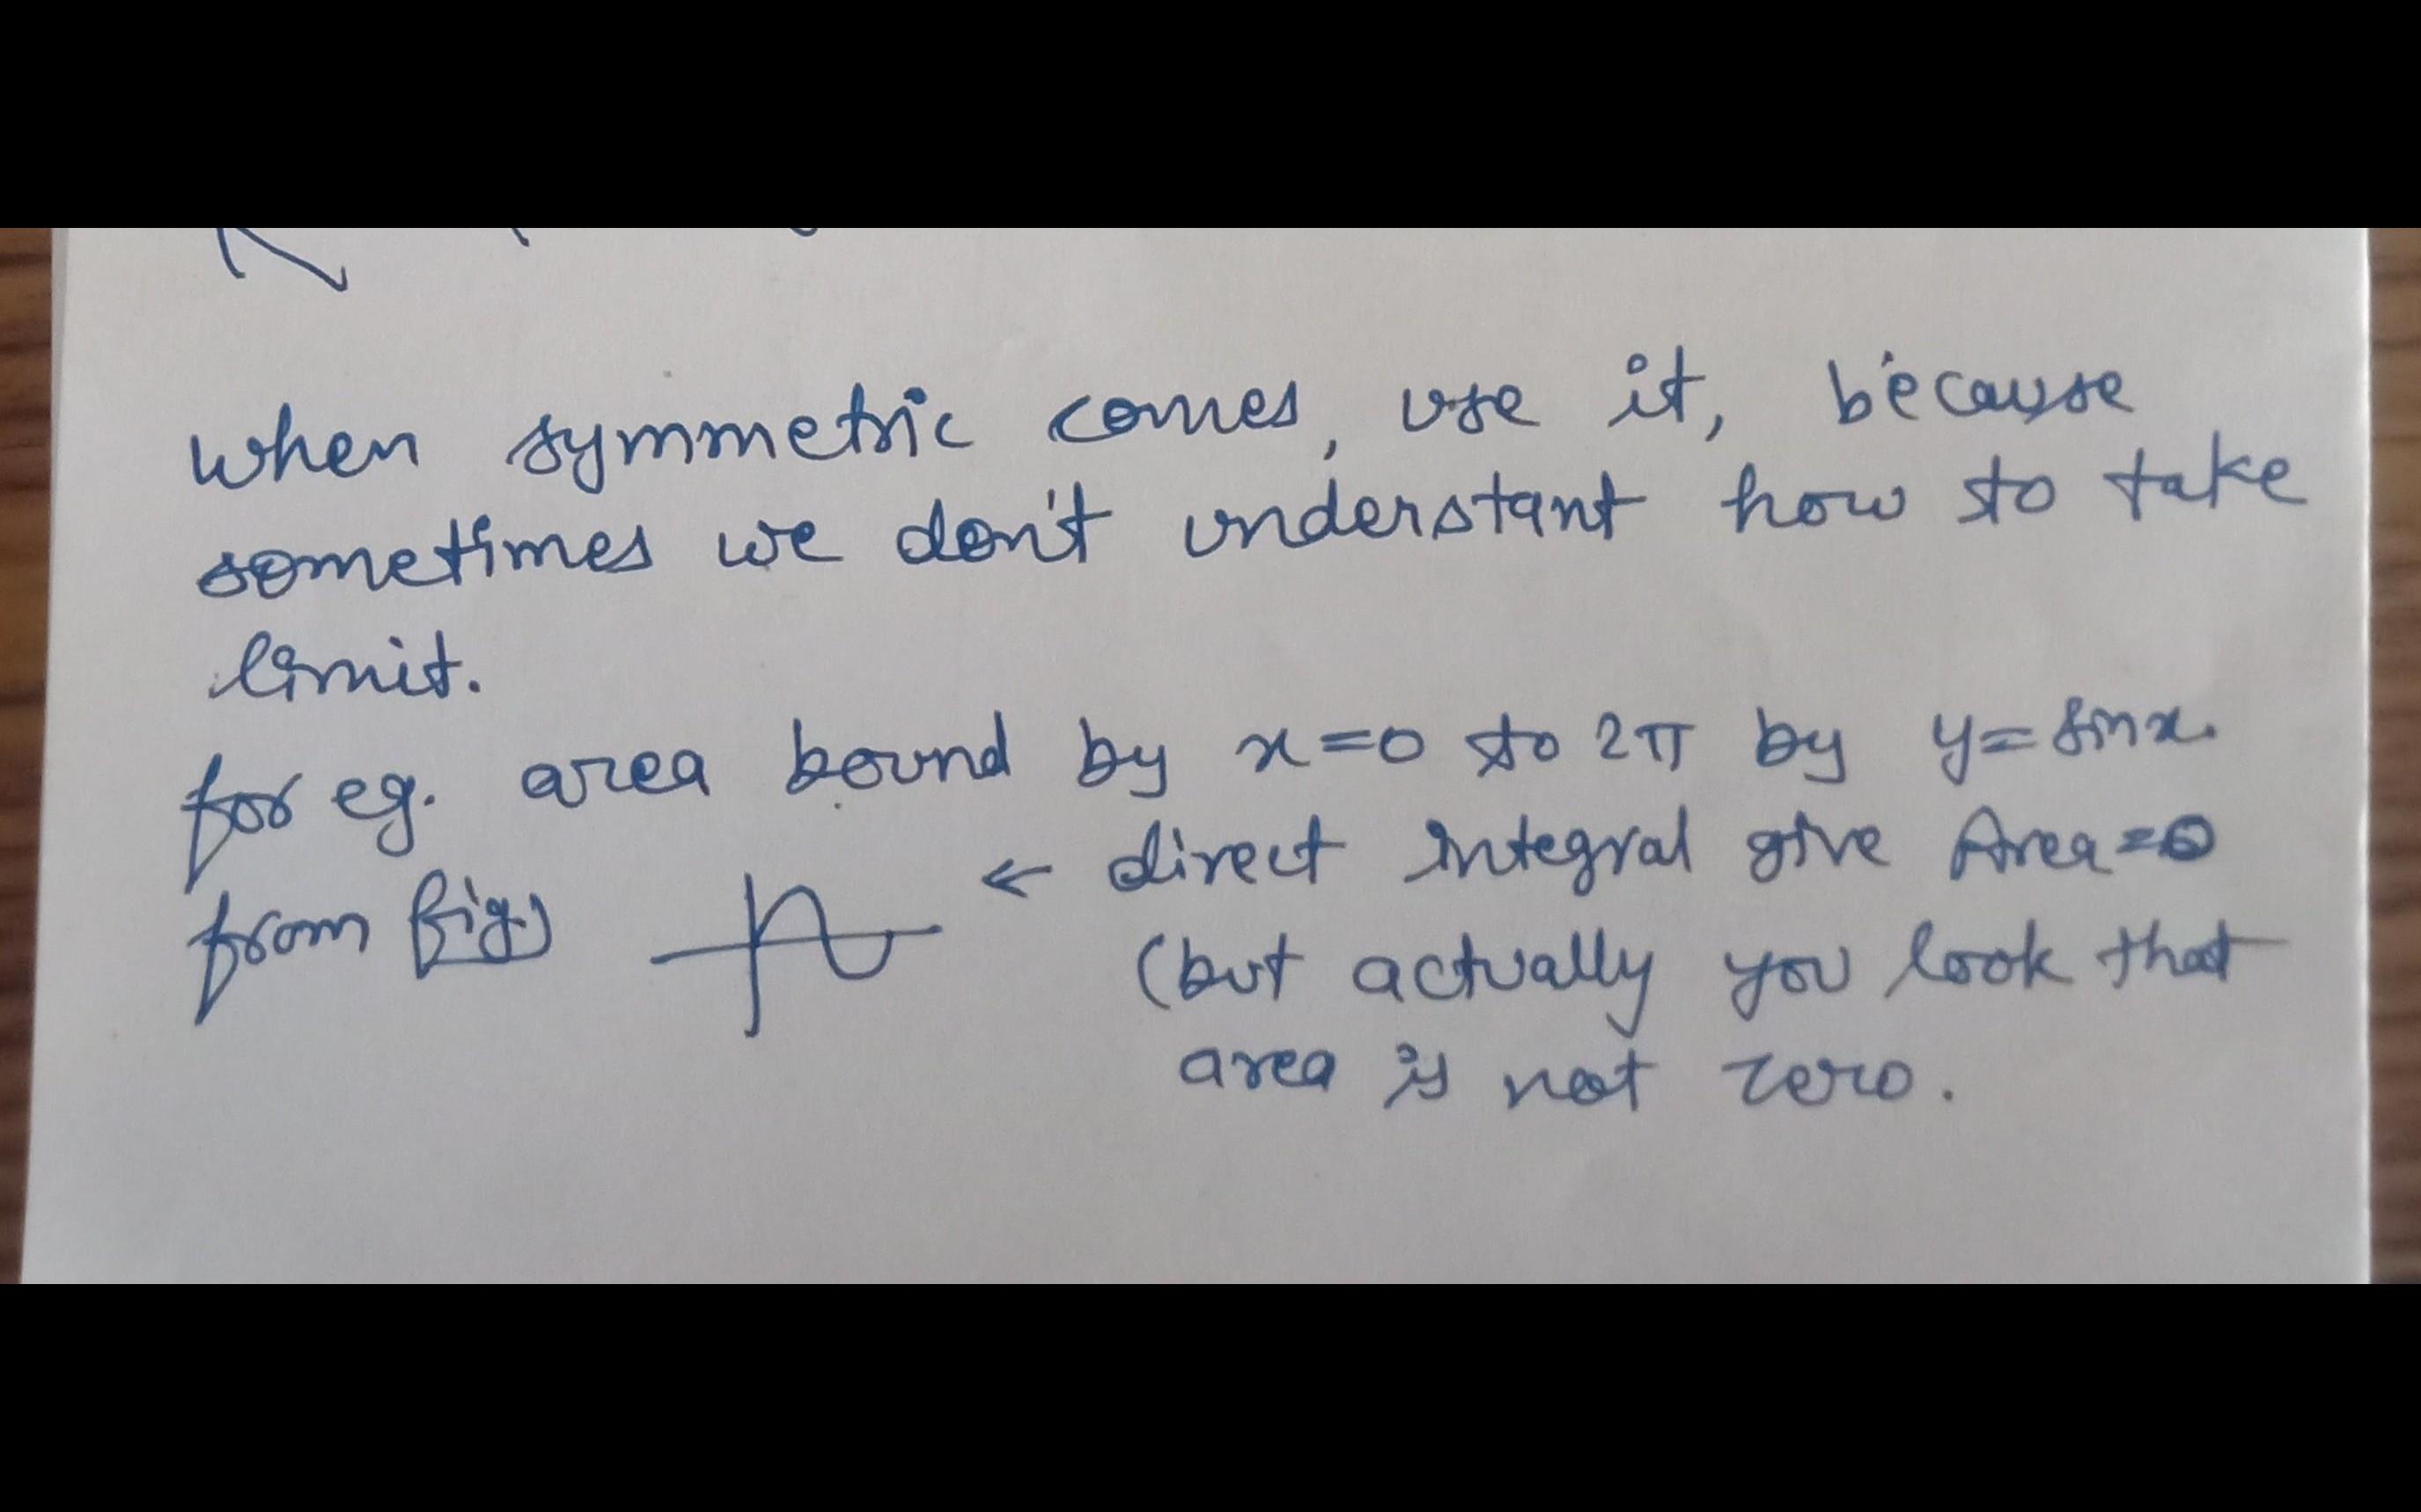 when symmetric comes, use it, because
sometimes we don't understant how to take
limit.
for eg. area bound by x=0 to 2π by y=sinx.
from fig) ← direct integral give Area=0
(but actually you look that
area is not zero.